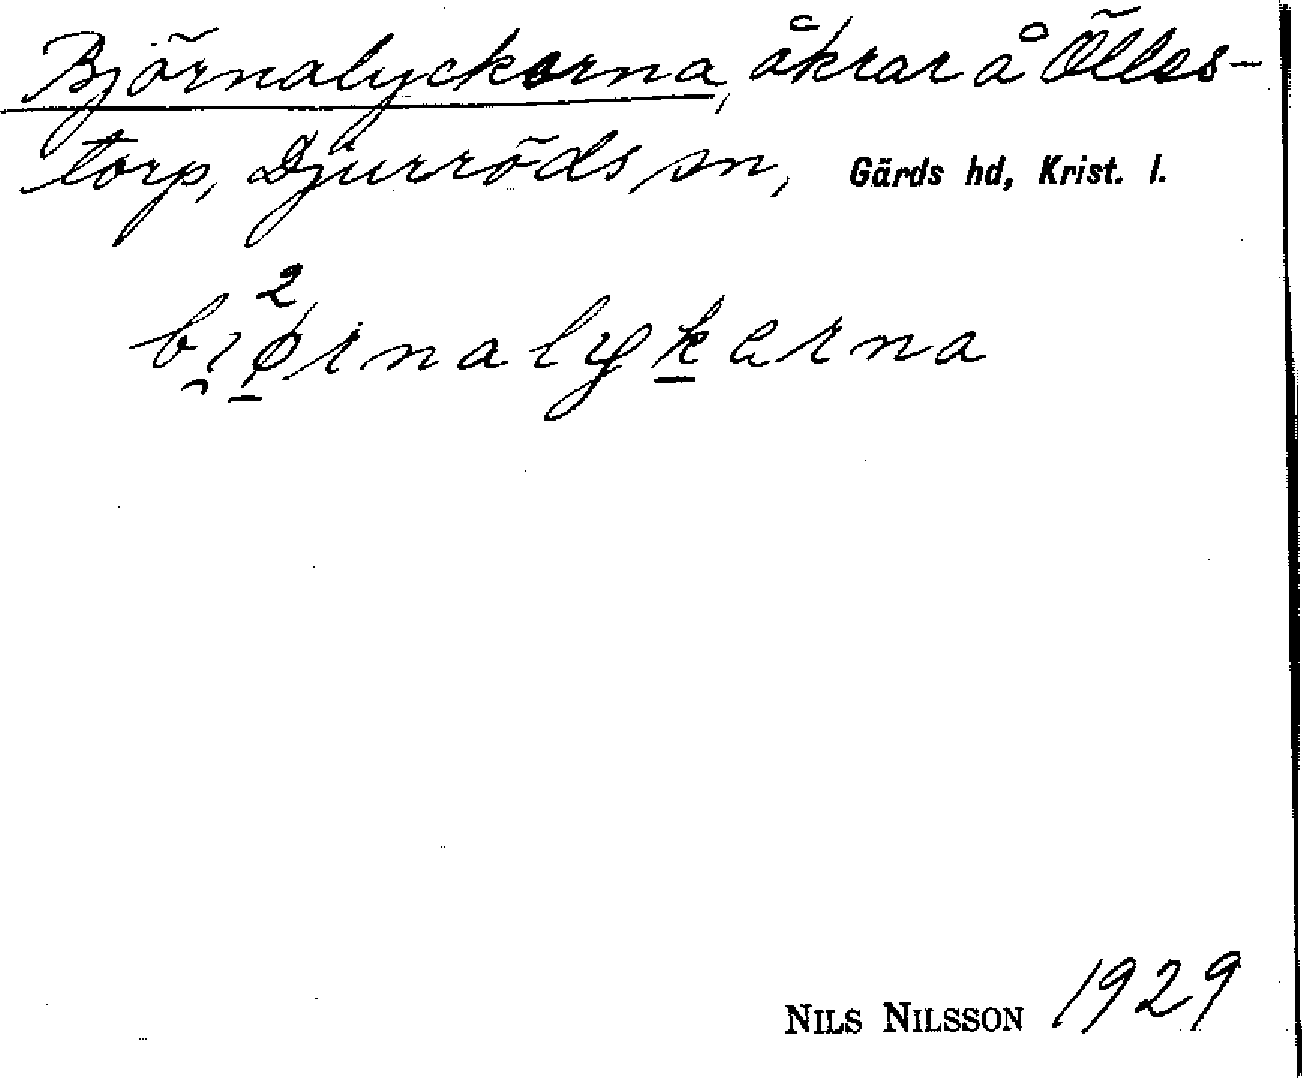 Björnalyckorna, åkrar å Ölles-
torp, Djurröds sn, Gärds hd, Krist. l.
bi̯ø̠²rnalyk̠ərna
NILS NILSSON 1929